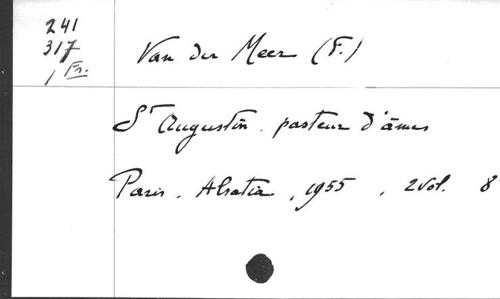 241
317
1 Fr.
Van der Meer (F.)
St Augustin. pasteur d'âmes
Paris. Alsatia, 1955, 2 vol. 8